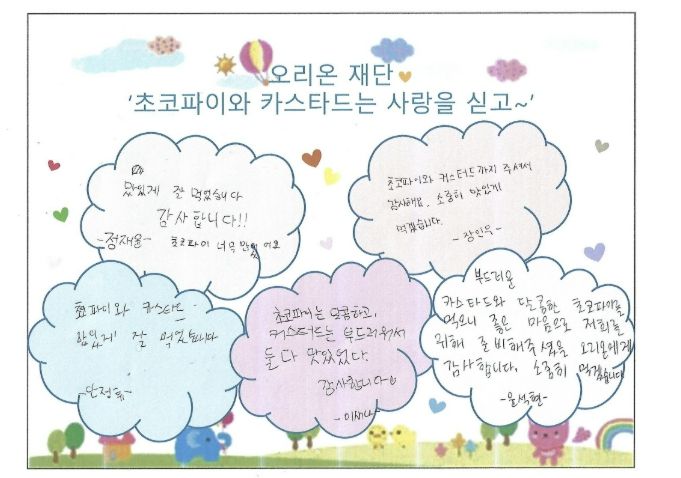 오리온 재단
'초코파이와 카스타드는 사랑을 싣고~'
맛있게 잘 먹었습니다
감사합니다!!
-정재율- 초코파이 너무 맛있어요
초코파이와 커스터드까지 주셔서
감사해요. 소중히 맛있게
먹겠습니다.
- 장인우 -
초코파이와 카스타드
맛있게 잘 먹었습니다
초코파이는 달콤하고,
커스터드는 부드러워서
둘 다 맛있었다.
감사합니다
부드러운
카스타드와 달콤한 초코파이를
먹으니 좋은 마음으로 저희를
위해 준비해주셨을 오리온에게
감사합니다. 소중히 먹겠습니다
-윤석현-